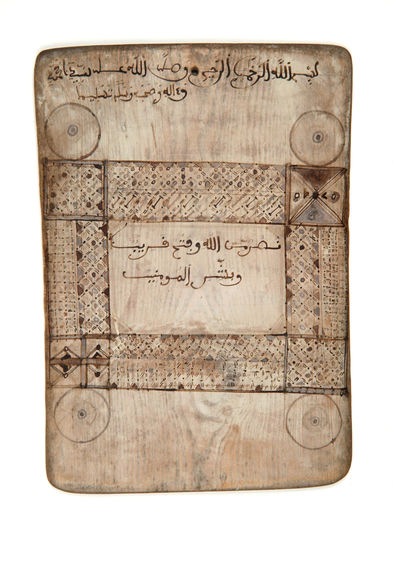 بسم الله الرحمن الرحيم وصلى الله على
وءاله وصحبه وسلم تسليما
نصر من الله وفتح قريب
وبشر المومنين